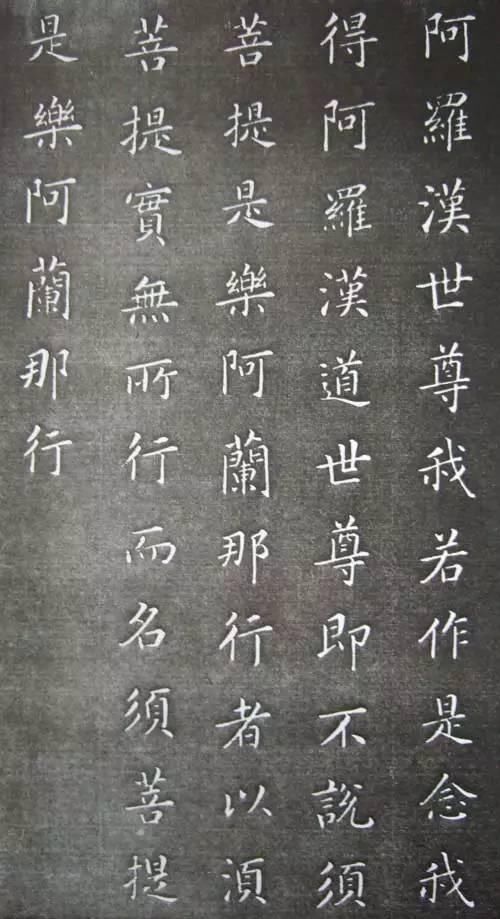 阿羅漢世尊我若作是念我
得阿羅漢道世尊即不說須
菩提是樂阿蘭那行者以須
菩提實無所行而名須菩提
是樂阿蘭那行